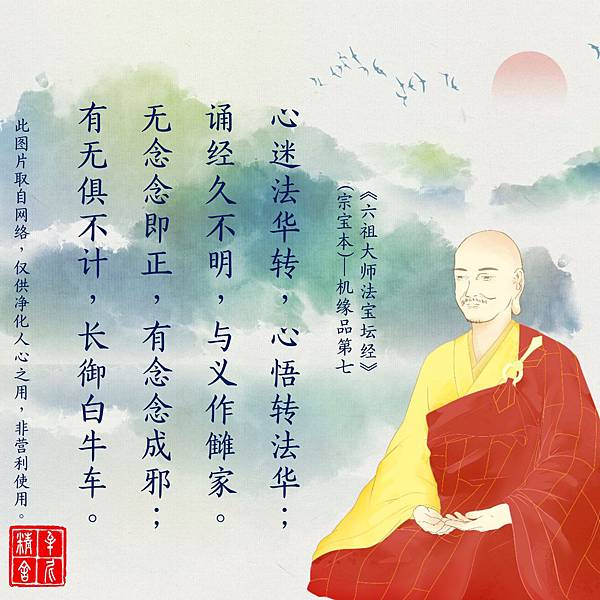 《六祖大师法宝坛经》
(宗宝本)—机缘品第七
心迷法华转，心悟转法华；
诵经久不明，与义作雠家。
无念念即正，有念念成邪；
有无俱不计，长御白牛车。
此图片取自网络，仅供净化人心之用，非营利使用。